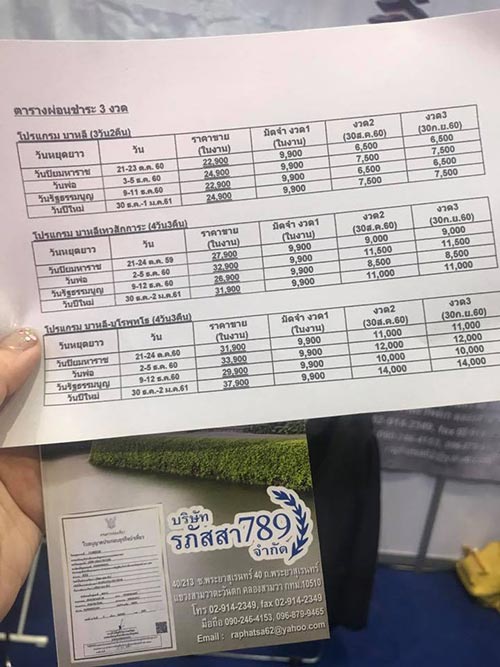 ตารางผ่อนชำระ 3 งวด
โปรแกรม บาหลี (3วัน2คืน)
วันหยุดยาว วัน ราคาขาย (ในงาน) มัดจำ งวด1 (ในงาน) งวด2 (30ส.ค.60) งวด3 (30ก.ย.60)
วันปิยมหาราช 21-23 ต.ค. 60 22,900 9,900 6,500 6,500
วันพ่อ 3-5 ธ.ค. 60 24,900 9,900 7,500 7,500
วันรัฐธรรมนูญ 9-11 ธ.ค.60 22,900 9,900 6,500 6,500
วันปีใหม่ 30 ธ.ค.-1 ม.ค.61 24,900 9,900 7,500 7,500
โปรแกรม บาหลีเทวสิการะ (4วัน3คืน)
วันหยุดยาว วัน ราคาขาย (ในงาน) มัดจำ งวด1 (ในงาน) งวด2 (30ส.ค.60) งวด3 (30ก.ย.60)
วันปิยมหาราช 21-24 ต.ค. 59 27,900 9,900 9,000 9,000
วันพ่อ 2-5 ธ.ค. 60 32,900 9,900 11,500 11,500
วันรัฐธรรมนูญ 9-12 ธ.ค. 60 26,900 9,900 8,500 8,500
วันปีใหม่ 30 ธ.ค.-2 ม.ค.61 31,900 9,900 11,000 11,000
โปรแกรม บาหลี-บุโรพุทโธ (4วัน3คืน)
วันหยุดยาว วัน ราคาขาย (ในงาน) มัดจำ งวด1 (ในงาน) งวด2 (30ส.ค.60) งวด3 (30ก.ย.60)
วันปิยมหาราช 21-24 ต.ค.60 31,900 9,900 11,000 11,000
วันพ่อ 2-5 ธ.ค.60 33,900 9,900 12,000 12,000
วันรัฐธรรมนูญ 9-12 ธ.ค.60 29,900 9,900 10,000 10,000
วันปีใหม่ 30 ธ.ค.-2 ม.ค.61 37,900 9,900 14,000 14,000
บริษัท
รภัสสา789
จำกัด
40/213 ซ.พระยาสุเรนทร์ 40 ถ.พระยาสุเรนทร์
แขวงสามวาตะวันตก คลองสามวา กทม.10510
โทร 02-914-2349, fax 02-914-2349
มือถือ 090-246-4153, 096-879-9465
Email : raphatsa62@yahoo.com
ใบอนุญาตประกอบธุรกิจนำเที่ยว